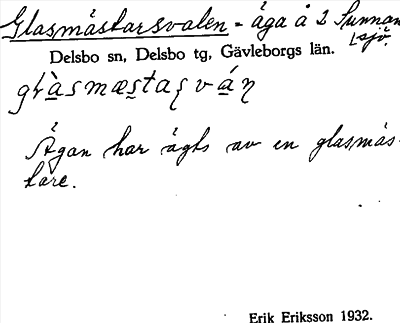 Glasmästarsvalen - äga å 2 Sunnan
sjö.
Delsbo sn, Delsbo tg, Gävleborgs län.
Ägan har ägts av en glasmäs-
tare.
Erik Eriksson 1932.